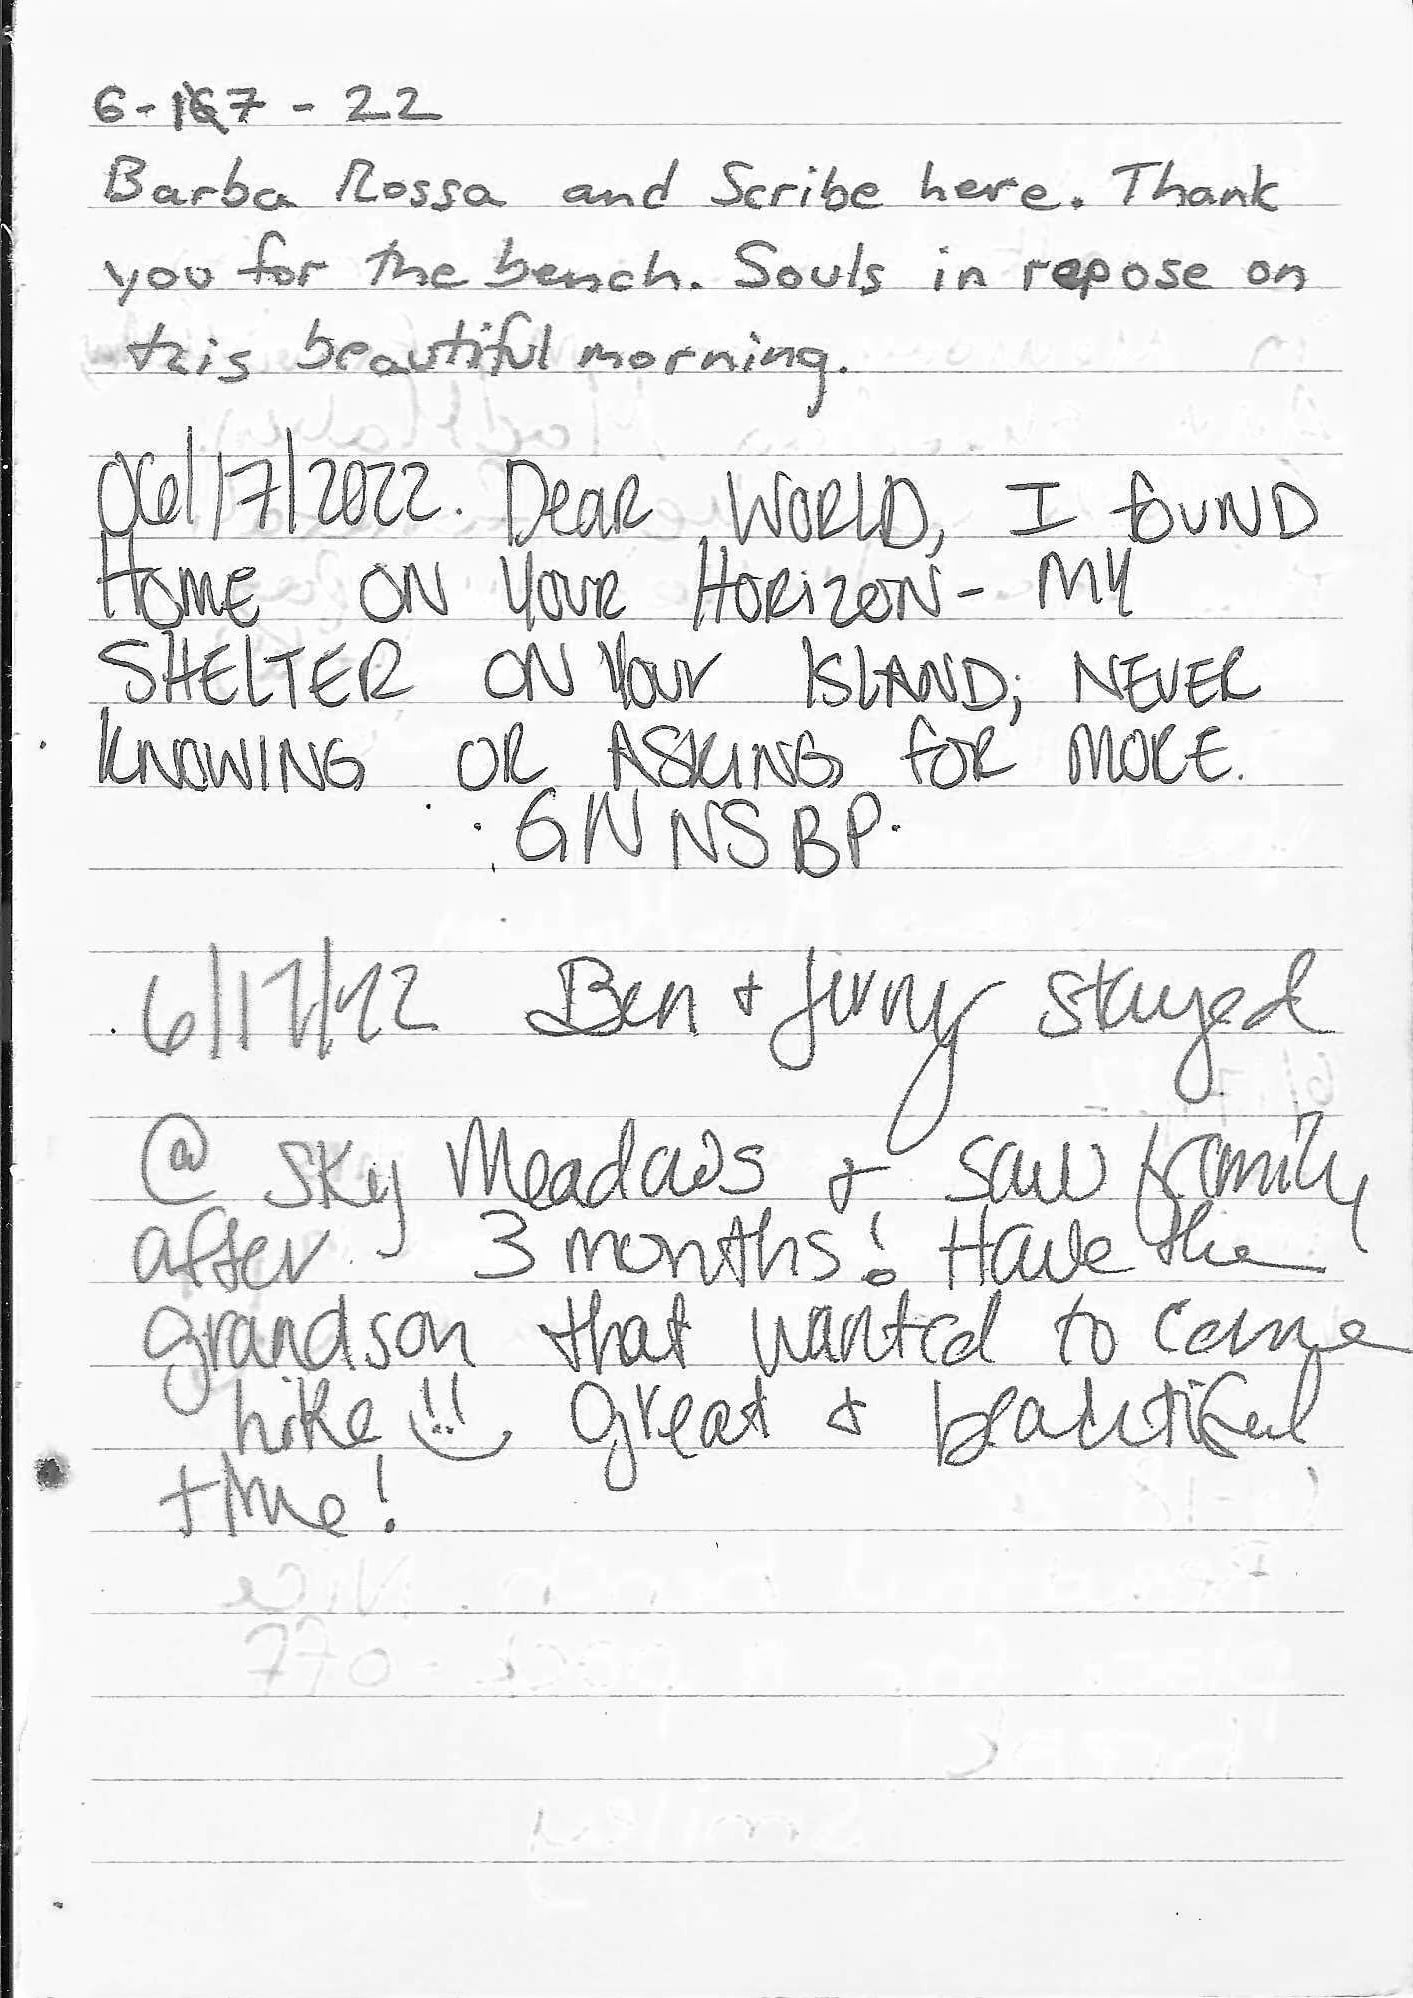 6-17-22
Barba Rossa and Scribe here. Thank
you for the bench. Souls in repose on
this beautiful morning.
06/17/2022. Dear World, I found
Home on your Horizon - my
SHELTER ON your ISLAND; NEVER
KNOWING OR ASKING for MORE.
: GNNSBP.
6/17/22 Ben + Jinny stayed
@ Sky Meadows + saw family
after 3 months! Have the
grandson that wanted to come
hike!! great + beautiful
time!